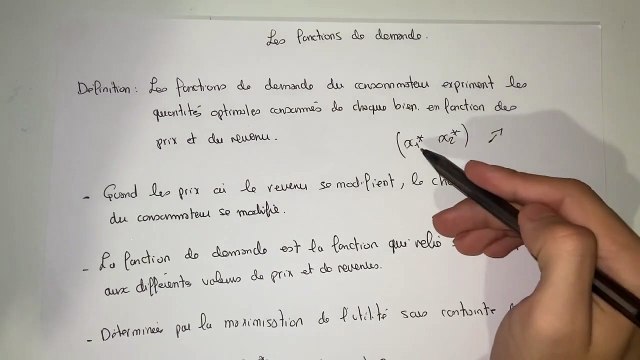 Les fonctions de demande.
Définition : Les fonctions de demande du consommateur expriment les
quantités optimales consommés de chaque bien en fonction des
prix et du revenu.
(x₁* x₂*) ↗
- Quand les prix où le revenu se modifient, le
du consommateur se modifie.
- La fonction de demande est la fonction qui relie
aux différents valeurs de prix et de revenus.
- Déterminée par la maximisation de l'utilité sous contrainte